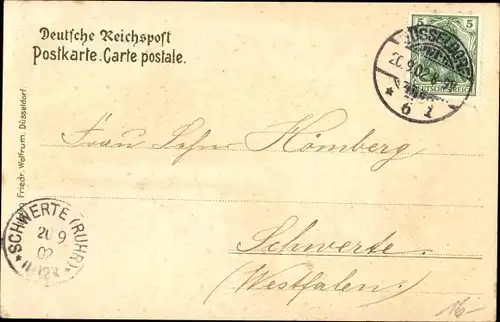 Deutsche Reichspost
Postkarte. Carte postale.
5 5
DÜSSELDORF
20.9.02
* 6 1
DEUTSCHES REICH
Friedr. Wolfrum, Düsseldorf
Frau Hömberg
Schwerte.
(Westfalen)
* SCHWERTE (RUHR) *
20 9
02
16-